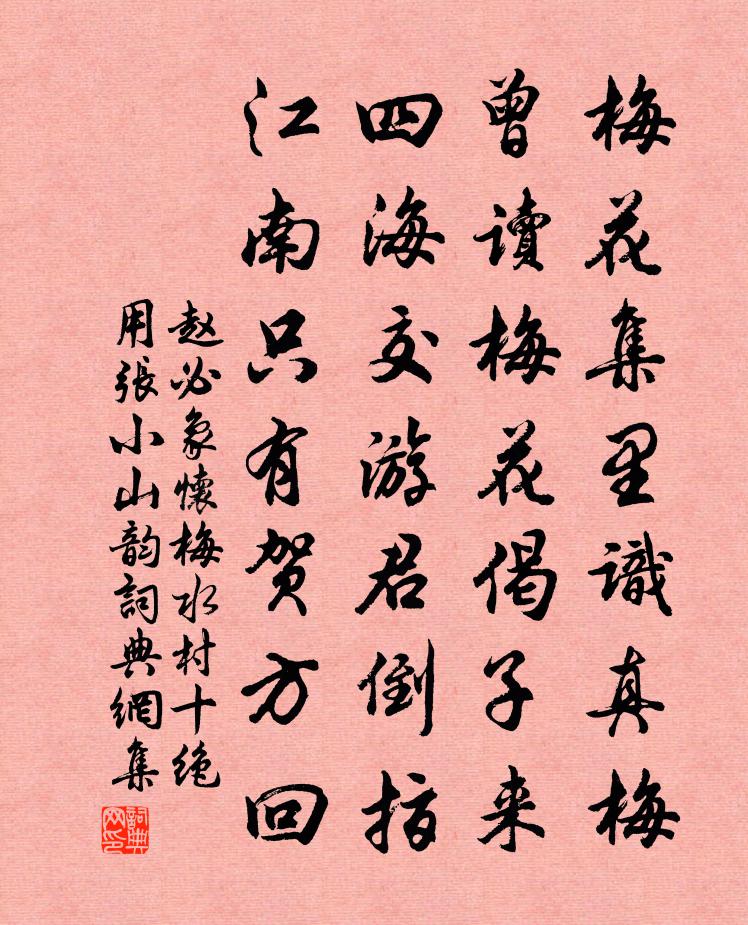 梅花集里識真梅
曾讀梅花偈子来
四海交游君倒指
江南只有贺方回
赵必象懷梅水村十绝
用張小山韵詞典網集
詞典网印